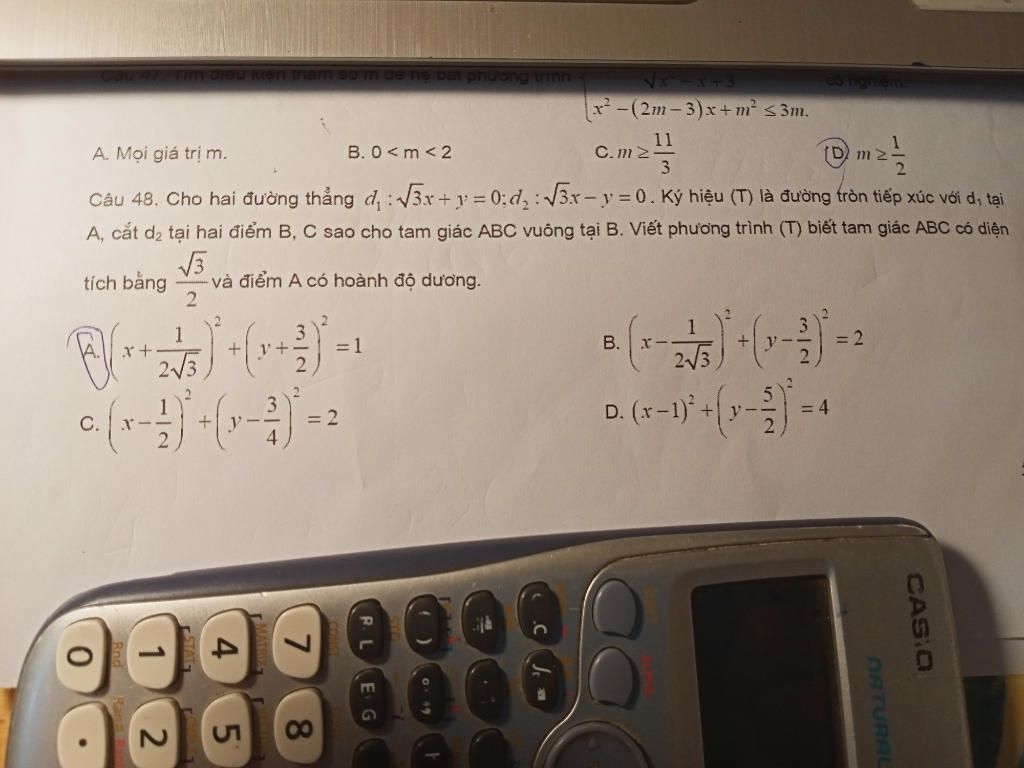 Câu 47. Tìm điều kiện tham số m để hệ bất phương trình √x² − x + 3 có nghiệm.
x² − (2m − 3)x + m² ≤ 3m.
A. Mọi giá trị m. B. 0 < m < 2 C. m ≥ 11/3 D. m ≥ 1/2
Câu 48. Cho hai đường thẳng d₁ : √3x + y = 0; d₂ : √3x − y = 0. Ký hiệu (T) là đường tròn tiếp xúc với d₁ tại
A, cắt d₂ tại hai điểm B, C sao cho tam giác ABC vuông tại B. Viết phương trình (T) biết tam giác ABC có diện
tích bằng √3/2 và điểm A có hoành độ dương.
A. (x + 1/(2√3))² + (y + 3/2)² = 1 B. (x − 1/(2√3))² + (y − 3/2)² = 2
C. (x − 1/2)² + (y − 3/4)² = 2 D. (x − 1)² + (y − 5/2)² = 4
CASIO
NATURAL
0 1 4 7
. 2 5 8
Rnd
Ran#